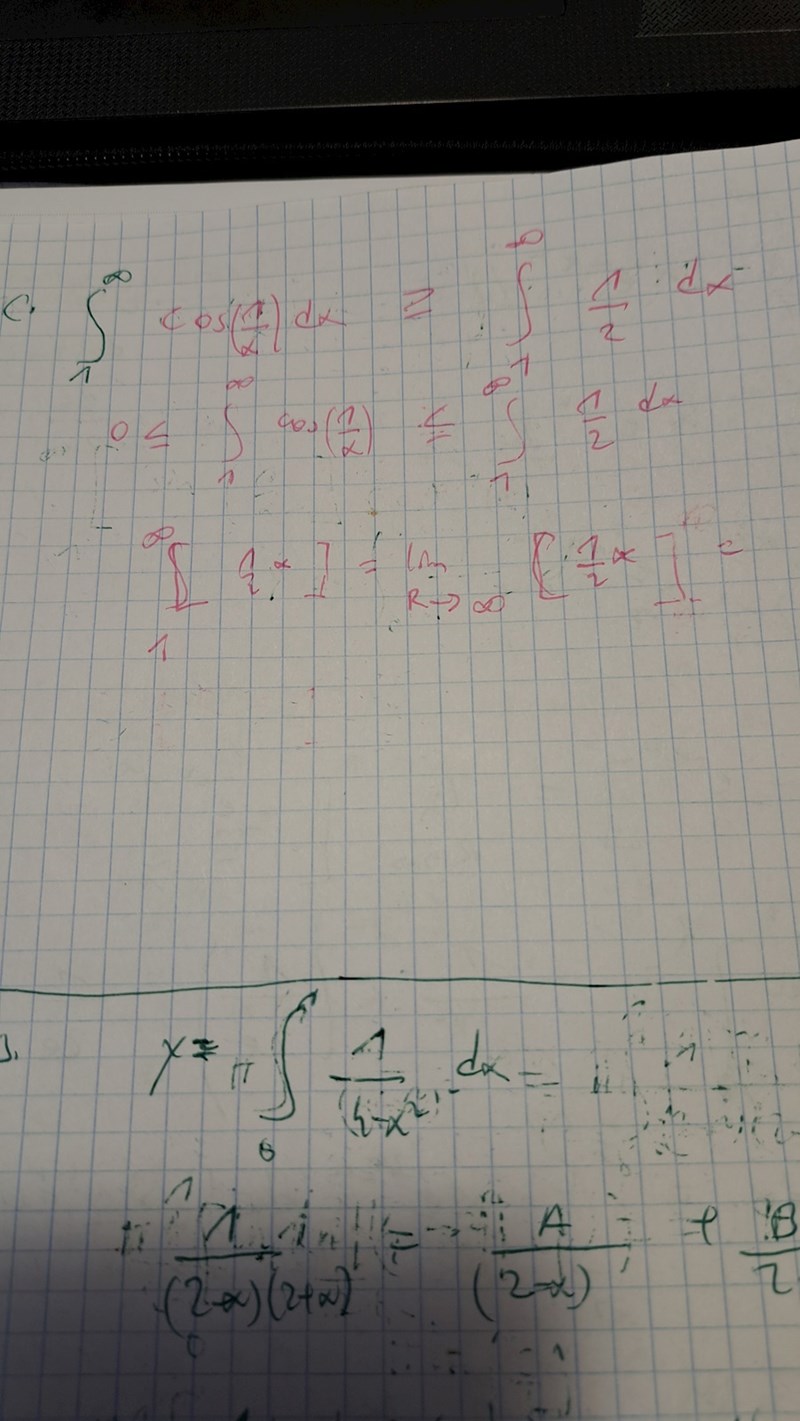 c. ∫₁^∞ cos(1/x) dx ≥ ∫₁^∞ 1/2 dx
0 ≤ ∫₁^∞ cos(1/x) ≤ ∫₁^∞ 1/2 dx
[1/2 x]₁^∞ = lim R→∞ [1/2 x] =
π ∫₀¹ 1/(4-x²) dx = π
π 1/((2-x)(2+x)) = A/(2-x) + B/2